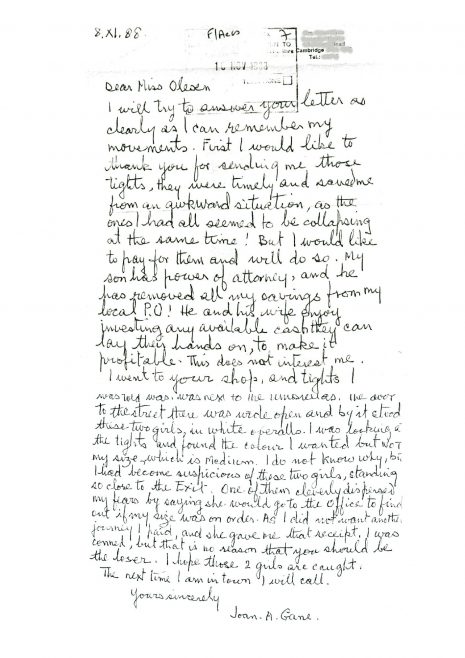 8.XI.88
F/Accs
7
N TO
Cambridge
Tel:
16 NOV 1988
Dear Miss Olesen
I will try to answer your letter as
clearly as I can remember my
movements. First I would like to
thank you for sending me those
tights, they were timely and saved me
from an awkward situation, as the
ones I had all seemed to be collapsing
at the same time! But I would like
to pay for them and will do so. My
son has power of attorney, and he
has removed all my savings from my
local P.O! He and his wife enjoy
investing any available cash they can
lay their hands on, to make it
profitable. This does not interest me.
I went to your shop, and tights I
was told was, was next to the umbrellas. The door
to the street there was wide open and by it stood
these two girls, in white overalls. I was looking at
the tights and found the colour I wanted but NOT
my size, which is Medium. I do not know why, but
I had become suspicious of these two girls, standing
so close to the Exit. One of them cleverly dispersed
my fears by saying she would go to the Office to find
out if my size was on order. As I did not want another
journey I paid, and she gave me that receipt. I was
conned, but that is no reason that you should be
the loser. I hope those 2 girls are caught.
The next time I am in town I will call.
Yours sincerely
Joan. A. Gane.